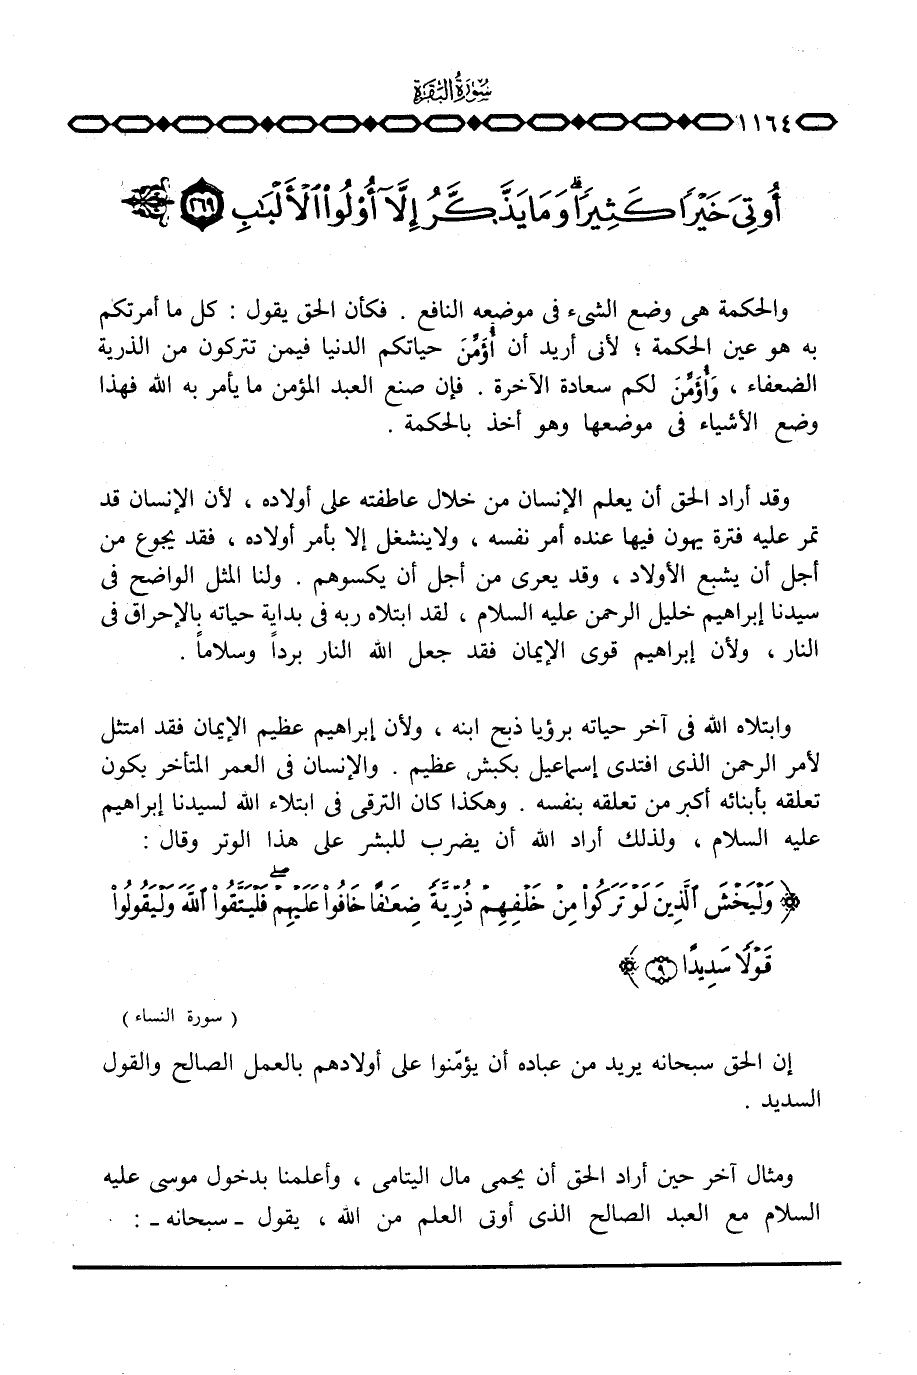 سُورَةُ البَقَرَةِ
١١٦٤
أُوتِىَ خَيْرًا كَثِيرًا ۗ وَمَا يَذَّكَّرُ إِلَّآ أُوْلُوا۟ ٱلْأَلْبَٰبِ ٢٦٩
والحكمة هى وضع الشىء فى موضعه النافع . فكأن الحق يقول : كل ما أمرتكم
به هو عين الحكمة ؛ لأنى أريد أن أُؤَمِّنَ حياتكم الدنيا فيمن تتركون من الذرية
الضعفاء ، وَأُؤَمِّنَ لكم سعادة الآخرة . فإن صنع العبد المؤمن ما يأمر به الله فهذا
وضع الأشياء فى موضعها وهو أخذ بالحكمة .
وقد أراد الحق أن يعلم الإنسان من خلال عاطفته على أولاده ، لأن الإنسان قد
تمر عليه فترة يهون فيها عنده أمر نفسه ، ولاينشغل إلا بأمر أولاده ، فقد يجوع من
أجل أن يشبع الأولاد ، وقد يعرى من أجل أن يكسوهم . ولنا المثل الواضح فى
سيدنا إبراهيم خليل الرحمن عليه السلام ، لقد ابتلاه ربه فى بداية حياته بالإحراق فى
النار ، ولأن إبراهيم قوى الإيمان فقد جعل الله النار برداً وسلاماً .
وابتلاه الله فى آخر حياته برؤيا ذبح ابنه ، ولأن إبراهيم عظيم الإيمان فقد امتثل
لأمر الرحمن الذى افتدى إسماعيل بكبش عظيم . والإنسان فى العمر المتأخر يكون
تعلقه بأبنائه أكبر من تعلقه بنفسه . وهكذا كان الترقى فى ابتلاء الله لسيدنا إبراهيم
عليه السلام ، ولذلك أراد الله أن يضرب للبشر على هذا الوتر وقال :
﴿ وَلْيَخْشَ ٱلَّذِينَ لَوْ تَرَكُوا۟ مِنْ خَلْفِهِمْ ذُرِّيَّةً ضِعَٰفًا خَافُوا۟ عَلَيْهِمْ ۖ فَلْيَتَّقُوا۟ ٱللَّهَ وَلْيَقُولُوا۟
قَوْلًا سَدِيدًا ٩ ﴾
( سورة النساء )
إن الحق سبحانه يريد من عباده أن يؤمّنوا على أولادهم بالعمل الصالح والقول
السديد .
ومثال آخر حين أراد الحق أن يحمى مال اليتامى ، وأعلمنا بدخول موسى عليه
السلام مع العبد الصالح الذى أوتى العلم من الله ، يقول ـ سبحانه ـ :